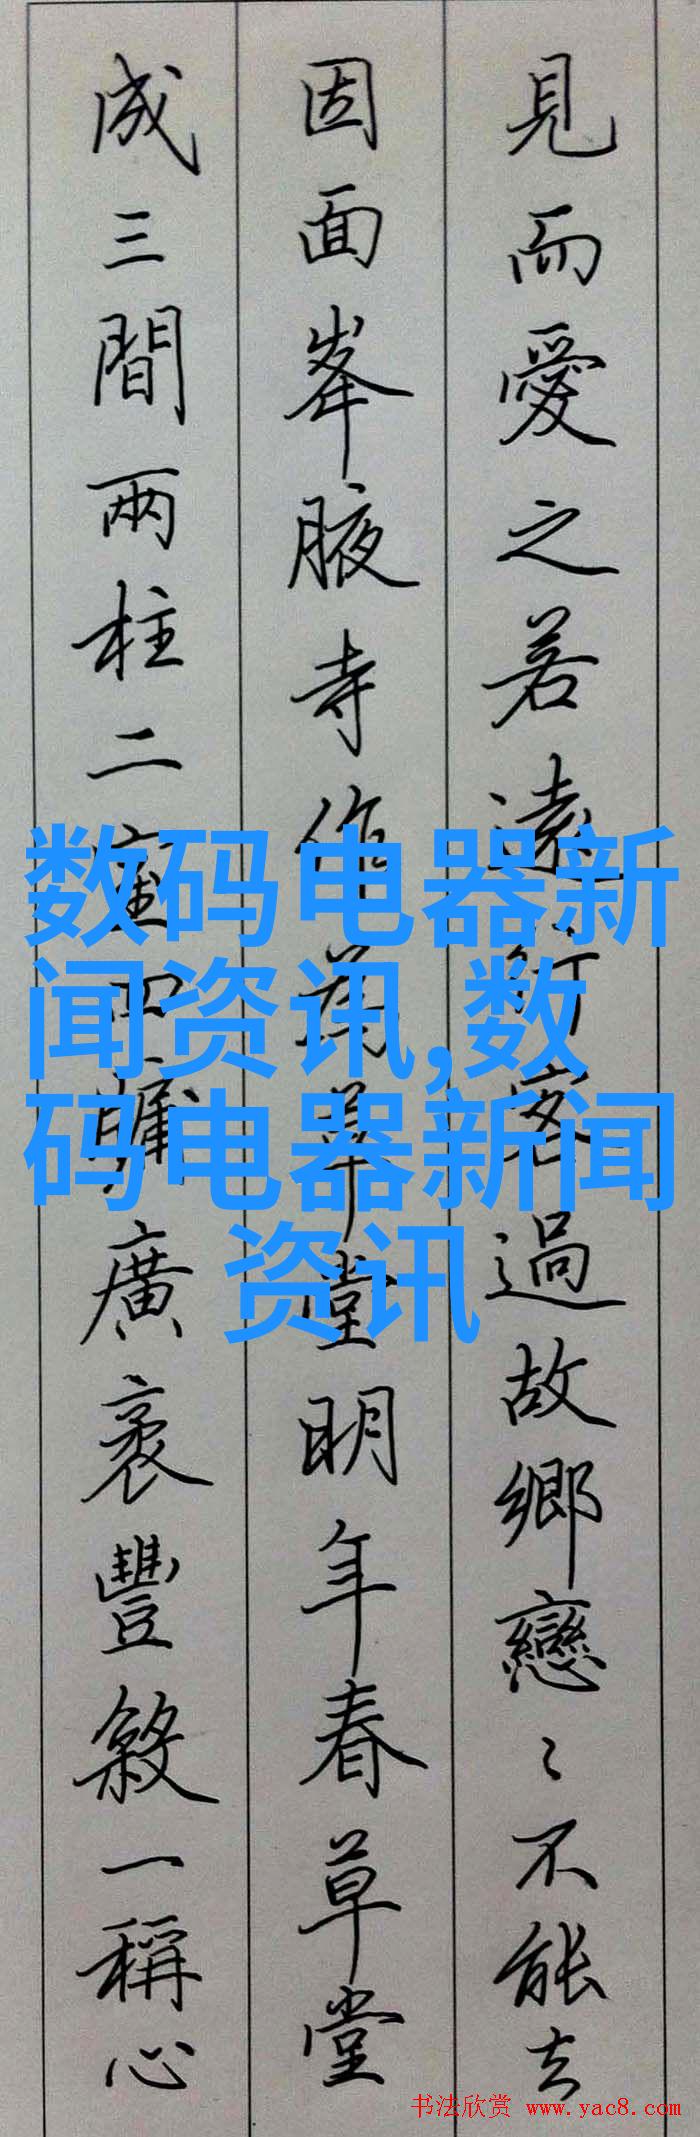 見而愛之若遠行客過故鄉戀〻不能去
因面峯腋寺作為草堂明年春草堂
成三間兩柱二室四牖廣袤豐殺一稱心
数码电器新
闻资讯,数
码电器新闻
资讯
书法欣赏 www.yac8.com